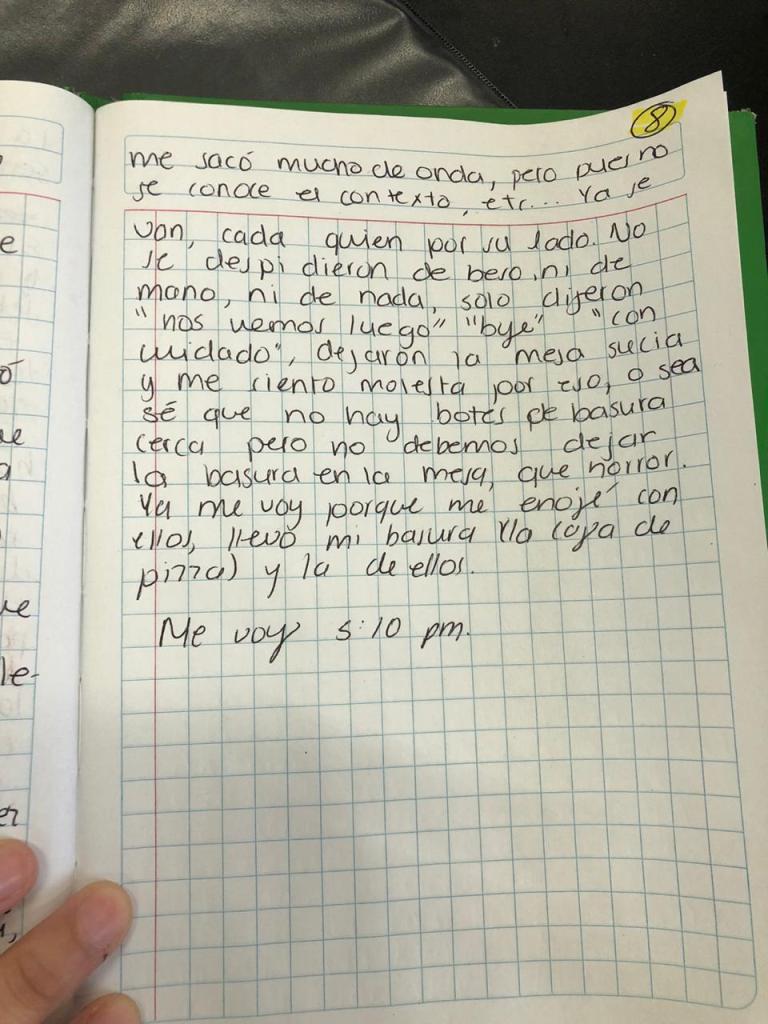 8
me sacó mucho de onda, pero pues no
se conoce el contexto, etc... Ya se
van, cada quien por su lado. No
se despidieron de beso, ni de
mano, ni de nada, solo dijeron
"nos vemos luego" "bye" "con
cuidado", dejarón la mesa sucia
y me siento molesta por eso, o sea
sé que no hay botes de basura
cerca pero no debemos dejar
la basura en la mesa, que horror.
Ya me voy porque me enojé con
ellos, llevó mi basura (la caja de
pizza) y la de ellos.
Me voy 5:10 pm.